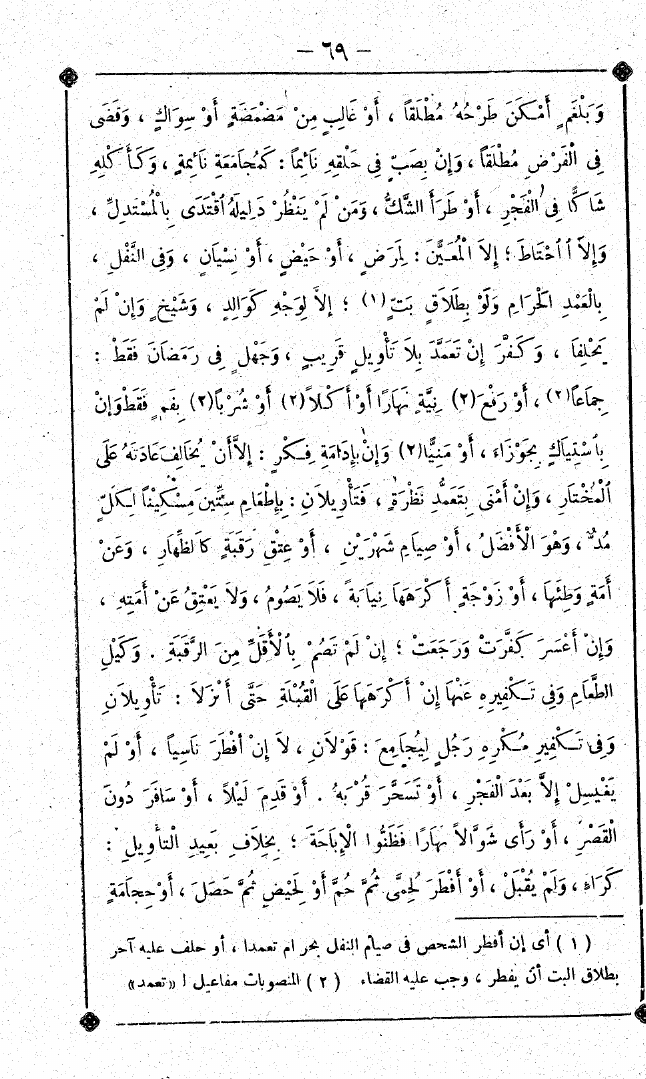 — ٦٩ —
وَبَلْغَمٍ أَمْكَنَ طَرْحُهُ مُطْلَقاً ، أَوْ غَالِبٍ مِنْ مَضْمَضَةٍ أَوْ سِوَاكٍ ، وَقَضَى
فِى الْفَرْضِ مُطْلَقاً ، وَإِنْ بِصَبٍّ فِى حَلْقِهِ نَائِماً : كَمُجَامَعَةِ نَائِمَةٍ ، وَكَأَكْلِهِ
شَاكًّا فِى الْفَجْرِ ، أَوْ طَرَأَ الشَّكُّ ، وَمَنْ لَمْ يَنْظُرْ دَلِيلَهُ اُقْتَدَى بِالْمُسْتَدِلِّ ،
وَإِلاَّ اُحْتَاطَ ؛ إِلاَّ الْمُعَيَّنَ : لِمَرَضٍ ، أَوْ حَيْضٍ ، أَوْ نِسْيَانٍ ، وَفِى النَّفْلِ ،
بِالْعَمْدِ الْحَرَامِ وَلَوْ بِطَلَاقٍ بَتٍّ (١) ؛ إِلاَّ لِوَجْهٍ كَوَالِدٍ ، وَشَيْخٍ وَإِنْ لَمْ
يَحْلِفَا ، وَكَفَّرَ إِنْ تَعَمَّدَ بِلاَ تَأْوِيلٍ قَرِيبٍ ، وَجَهْلٍ فِى رَمَضَانَ فَقَطْ :
جِمَاعاً (٢) ، أَوْ رَفْعَ (٢) نِيَّةٍ نَهَارًا أَوْ أَكْلاً (٢) أَوْ شُرْباً (٢) بِفَمٍ فَقَطْ وَإِنْ
بِاُسْتِيَاكٍ بِجَوْزَاءَ ، أَوْ مَنِيًّا (٢) وَإِنْ بِإِدَامَةِ فِكْرٍ : إِلاَّ أَنْ يُخَالِفَ عَادَتَهُ عَلَى
الْمُخْتَارِ ، وَإِنْ أَمْنَى بِتَعَمُّدِ نَظْرَةٍ ، فَتَأْوِيلاَنِ : بِإِطْعَامِ سِتِّينَ مِسْكِيناً لِكُلٍّ
مُدٌّ ، وَهُوَ الْأَفْضَلُ ، أَوْ صِيَامِ شَهْرَيْنِ ، أَوْ عِتْقِ رَقَبَةٍ كَالظِّهَارِ ، وَعَنْ
أَمَةٍ وَطِئَهَا ، أَوْ زَوْجَةٍ أَكْرَهَهَا نِيَابَةً ، فَلَا يَصُومُ ، وَلاَ يَعْتِقُ عَنْ أَمَتِهِ ،
وَإِنْ أَعْسَرَ كَفَّرَتْ وَرَجَعَتْ ؛ إِنْ لَمْ تَصُمْ بِالْأَقَلِّ مِنَ الرَّقَبَةِ . وَكَيْلِ
الطَّعَامِ وَفِى تَكْفِيرِهِ عَنْهَا إِنْ أَكْرَهَهَا عَلَى الْقُبْلَةِ حَتَّى أَنْزَلاَ : تَأْوِيلاَنِ
وَفِى تَكْفِيرِ مُكْرِهِ رَجُلٍ لِيُجَامِعَ : قَوْلاَنِ ، لاَ إِنْ أَفْطَرَ نَاسِياً ، أَوْ لَمْ
يَغْتَسِلْ إِلاَّ بَعْدَ الْفَجْرِ ، أَوْ تَسَحَّرَ قُرْبَهُ . أَوْ قَدِمَ لَيْلاً ، أَوْ سَافَرَ دُونَ
الْقَصْرِ ، أَوْ رَأَى شَوَّالاً نَهَارًا فَظَنُّوا الْإِبَاحَةَ ؛ بِخِلَافِ بَعِيدِ التَّأْوِيلِ :
كَرَاءٍ ، وَلَمْ يُقْبَلْ ، أَوْ أَفْطَرَ لِحُمَّى ثُمَّ حُمَّ أَوْ لِحَيْضٍ ثُمَّ حَصَلَ ، أَوْ حِجَامَةٍ
(١) أى إن أفطر الشخص فى صيام النفل بحرام تعمدا ، أو حلف عليه آخر
بطلاق البت أن يفطر ، وجب عليه القضاء (٢) المنصوبات مفاعيل لـ «تعمد»